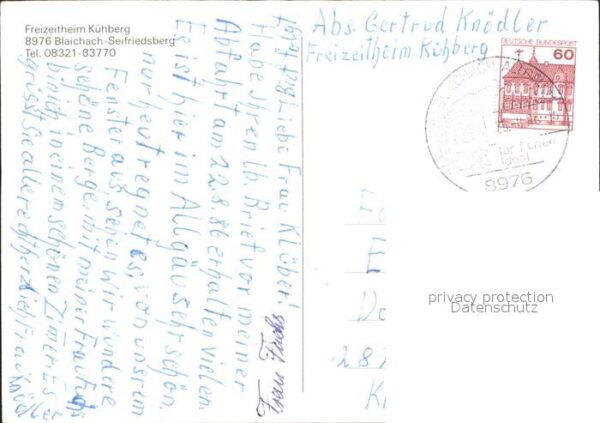 Freizeitheim Kühberg
8976 Blaichach-Seifriedsberg
Tel. 08321-83770
Abs. Gertrud Knödler
Freizeitheim Kühberg
DEUTSCHE BUNDESPOST
60
8976
Liebe Frau Klüber!
Habe Ihren lb. Brief vor meiner
Abfahrt am 22.8.86 erhalten vielen
Es ist hier im Allgäu sehr schön.
nur heut regnet es, von unsrem
Fenster aus, sehen wir wundere
schöne Berge, mit meine Frau Fuchs
bin ich in einem schönen Zimer. Es
grüsst Sie alle recht herzlich Frau Knödler
Frau Fuchs
privacy protection
Datenschutz